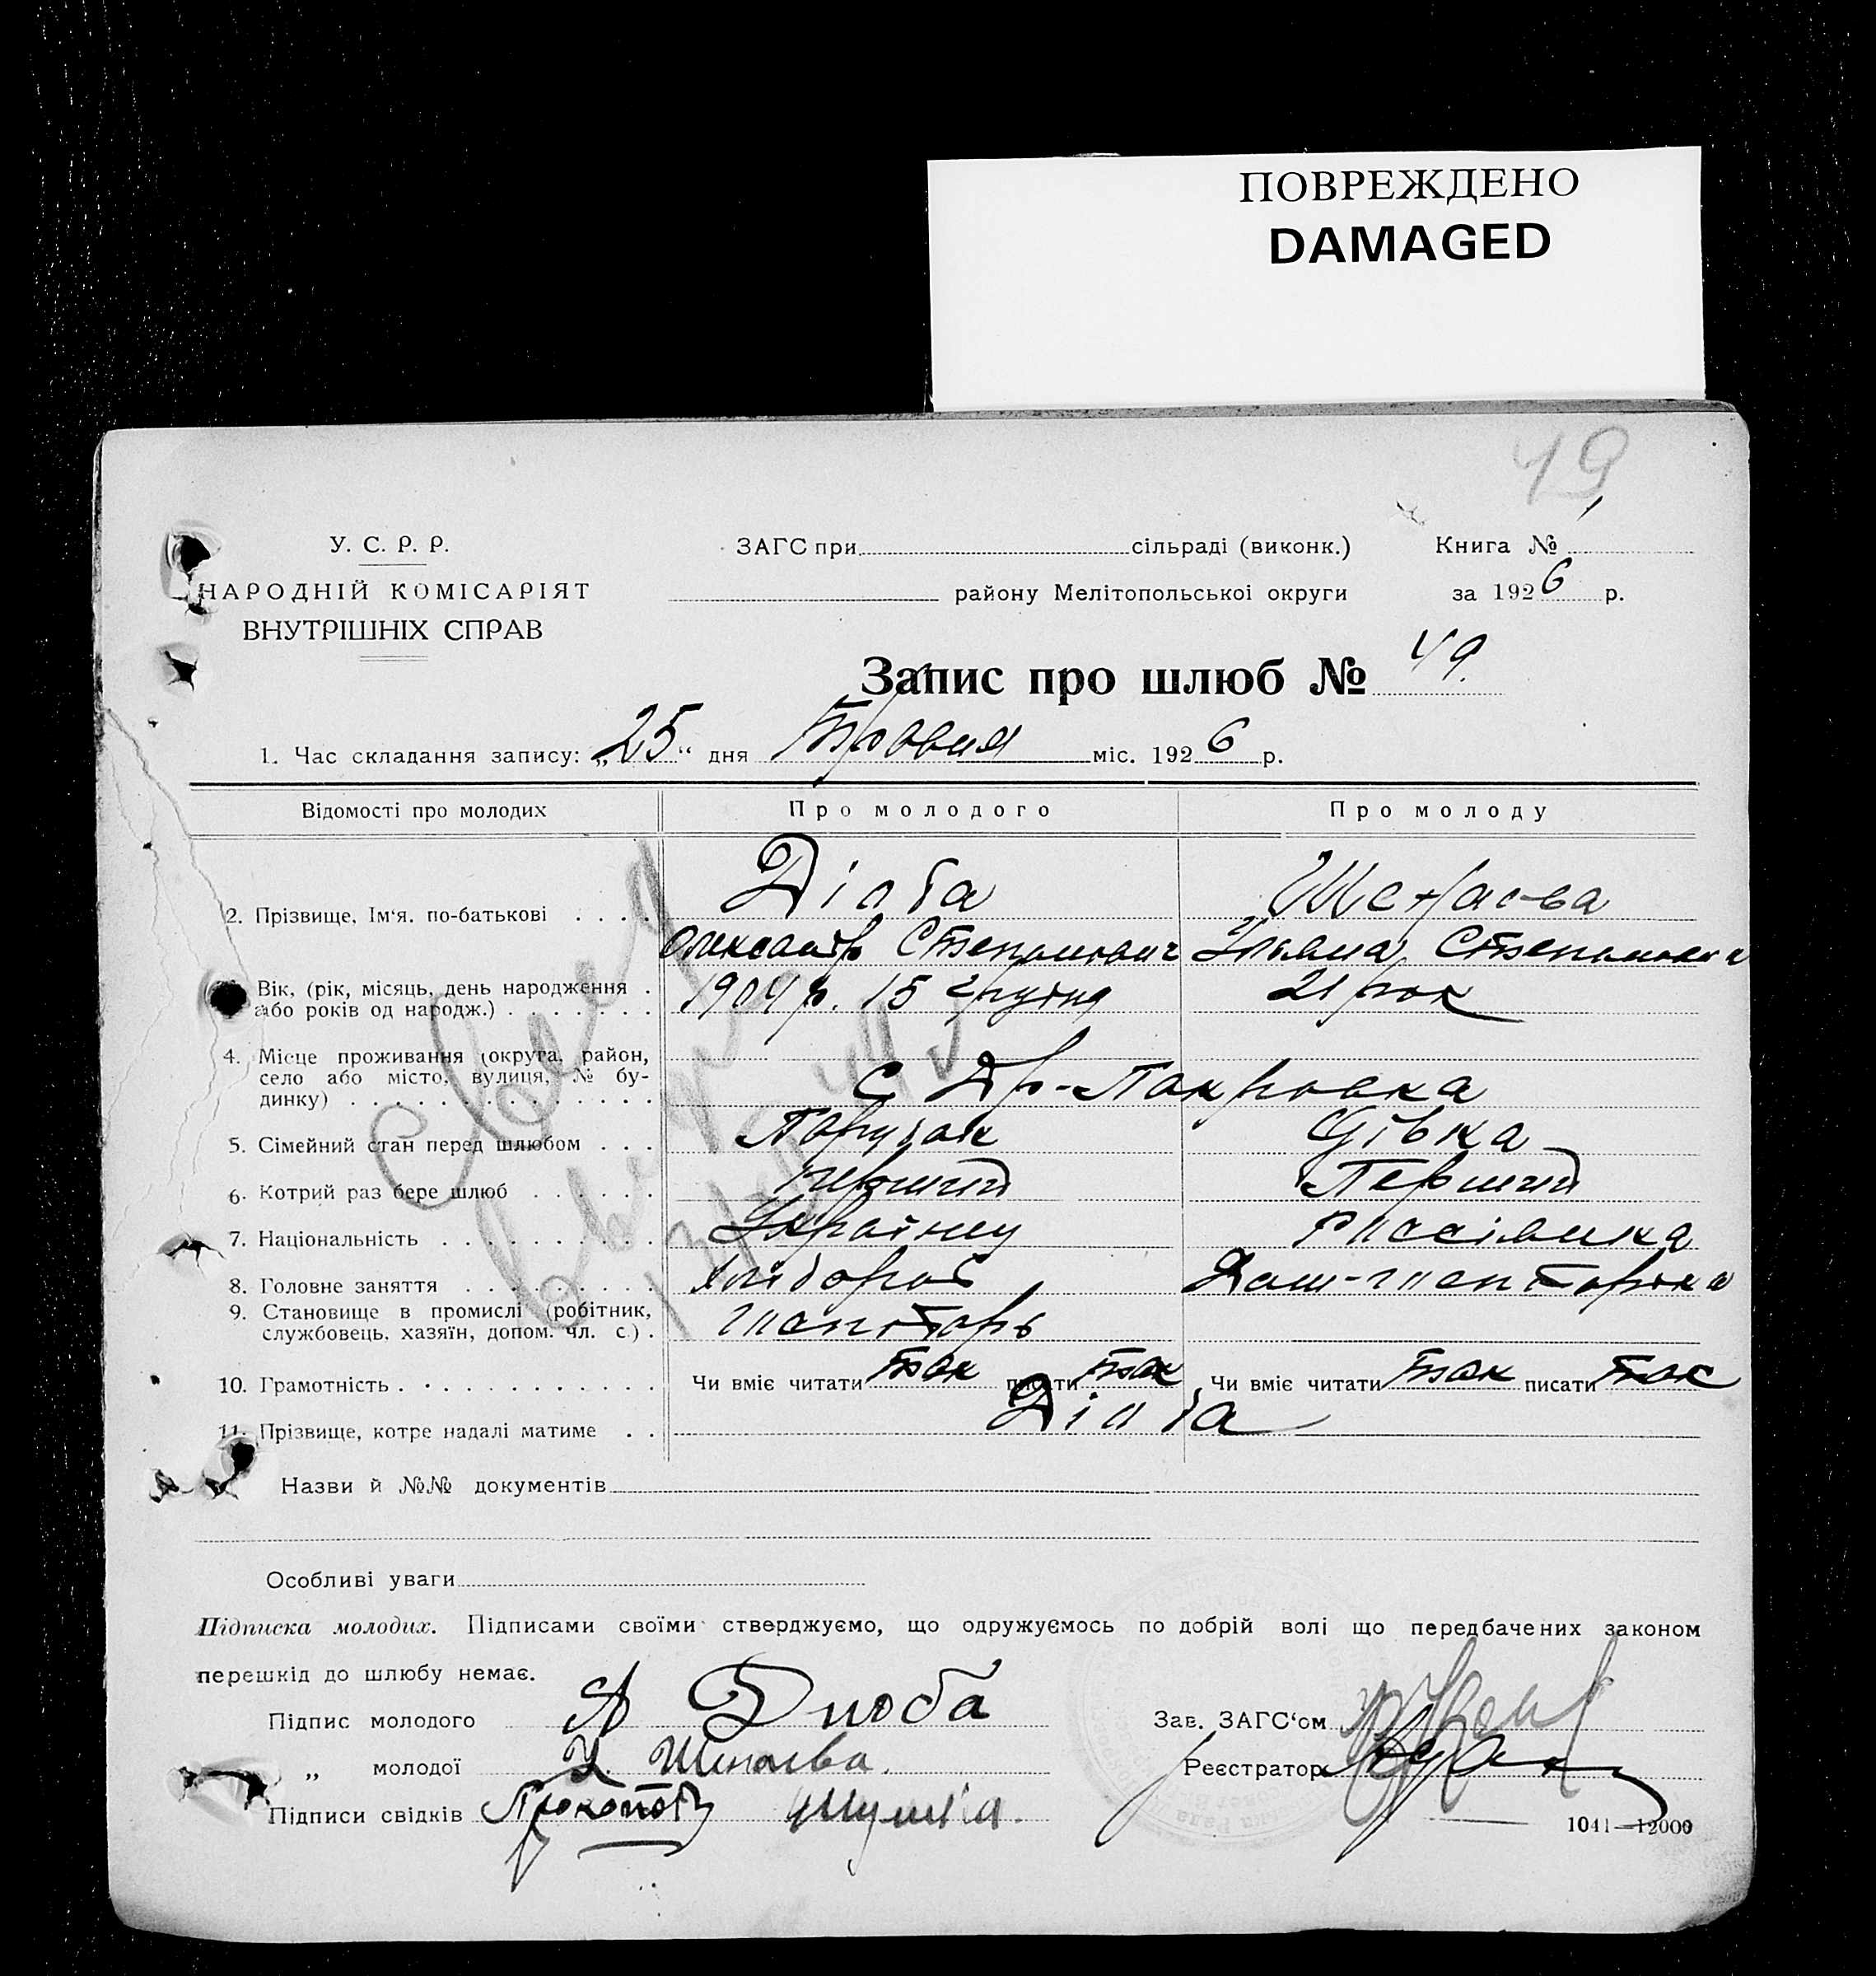 ПОВРЕЖДЕНО
DAMAGED
49
У. С. Р. Р.
НАРОДНІЙ КОМІСАРІЯТ
ВНУТРІШНІХ СПРАВ
ЗАГС при сільраді (виконк.) Книга №
району Мелітопольської округи за 1926 р.
Запис про шлюб № 49.
1. Час складання запису: „25“ дня Травня міс. 1926 р.
Відомості про молодих Про молодого Про молоду
2. Прізвище, Ім'я, по-батькові Діоба
Олександр Степанович Уляна Степановна
Вік, (рік, місяць, день народження 1904 р. 15 грудня 21 рок
або років од народж.)
4. Місце проживання (округа, район,
село або місто, вулиця, № бу-
динку) С Др-Покровка
5. Сімейний стан перед шлюбом Парубок Дівка
6. Котрий раз бере шлюб перший Перший
7. Національність Українец Россіянка
8. Головне заняття Хлібороб
9. Становище в промислі (робітник,
службовець, хазяїн, допом. чл. с.)
10. Грамотність Чи вміє читати так писати так Чи вміє читати так писати так
11. Прізвище, котре надалі матиме Діоба
Назви й №№ документів
Особливі уваги
Підписка молодих. Підписами своїми стверджуємо, що одружуємось по добрій волі що передбачених законом
перешкід до шлюбу немає.
Підпис молодого А Дюба Зав. ЗАГС'ом
„ молодої У. Реєстратор
Підписи свідків
1041—12000